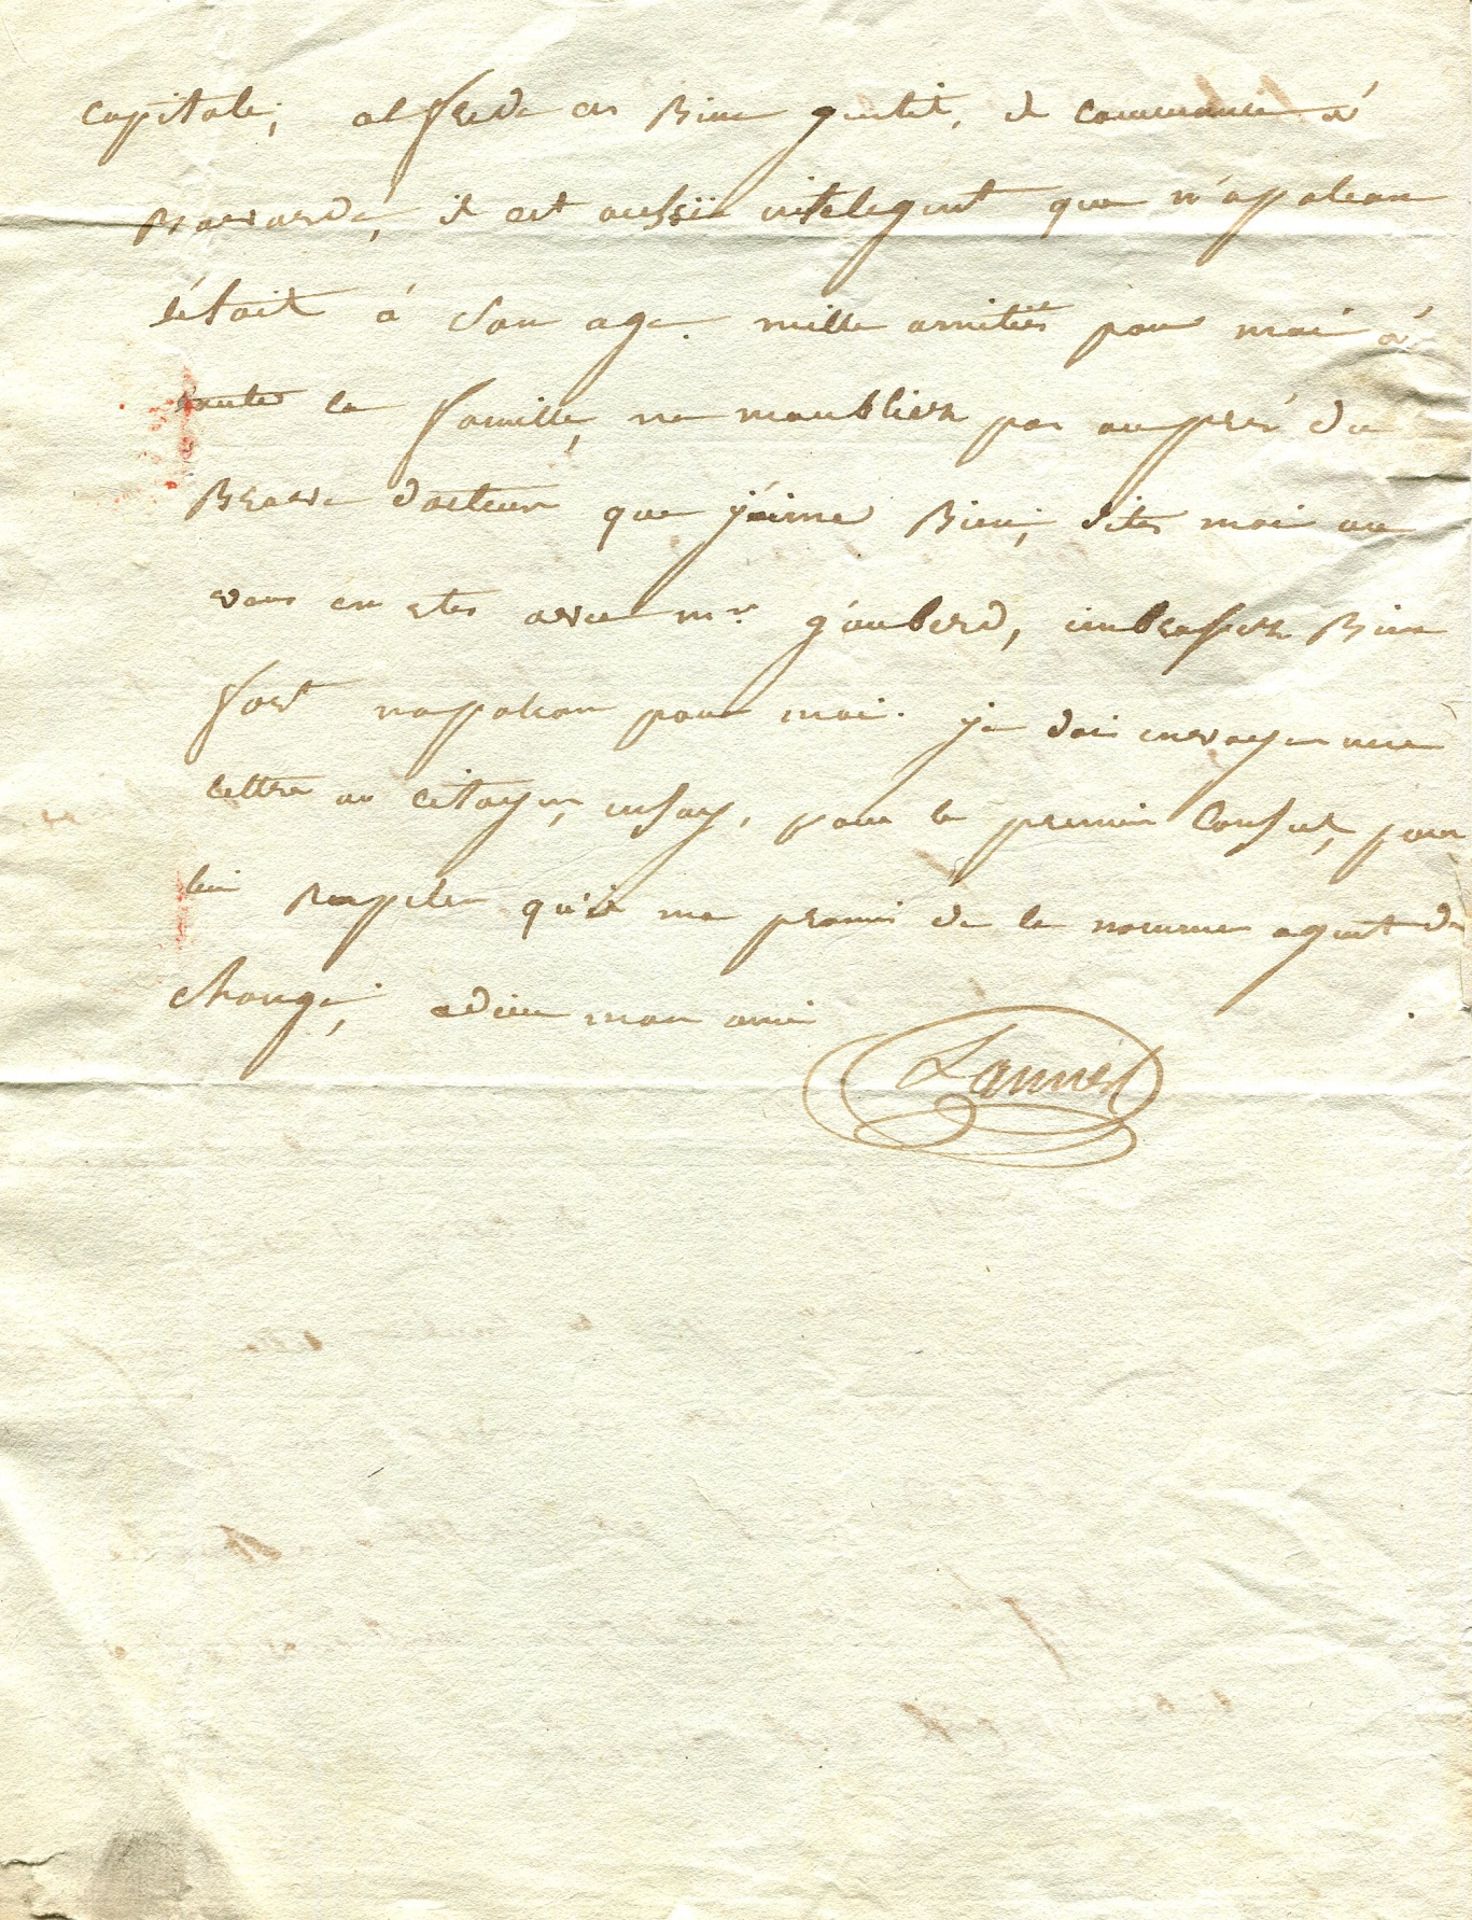 capitale; alfrede es Bien gentil, et commance à
Bavardé, il est aussïe intelegent que n'apoleon
l'étoit à son age. mille amitiés pour moi à
toute la famille, ne moublien pas aupres du
Brave docteur que j'aime Bien; dites moi ou
vous en etes avec mr. g'auberd, embrassen Bien
fort napoleon pour moi. je doi envoyer une
lettre au citoyen, pour le premier Consul, pour
lui rapeler qu'il ma promi de le nommer agent de
change; adieu mon ami
Lannes